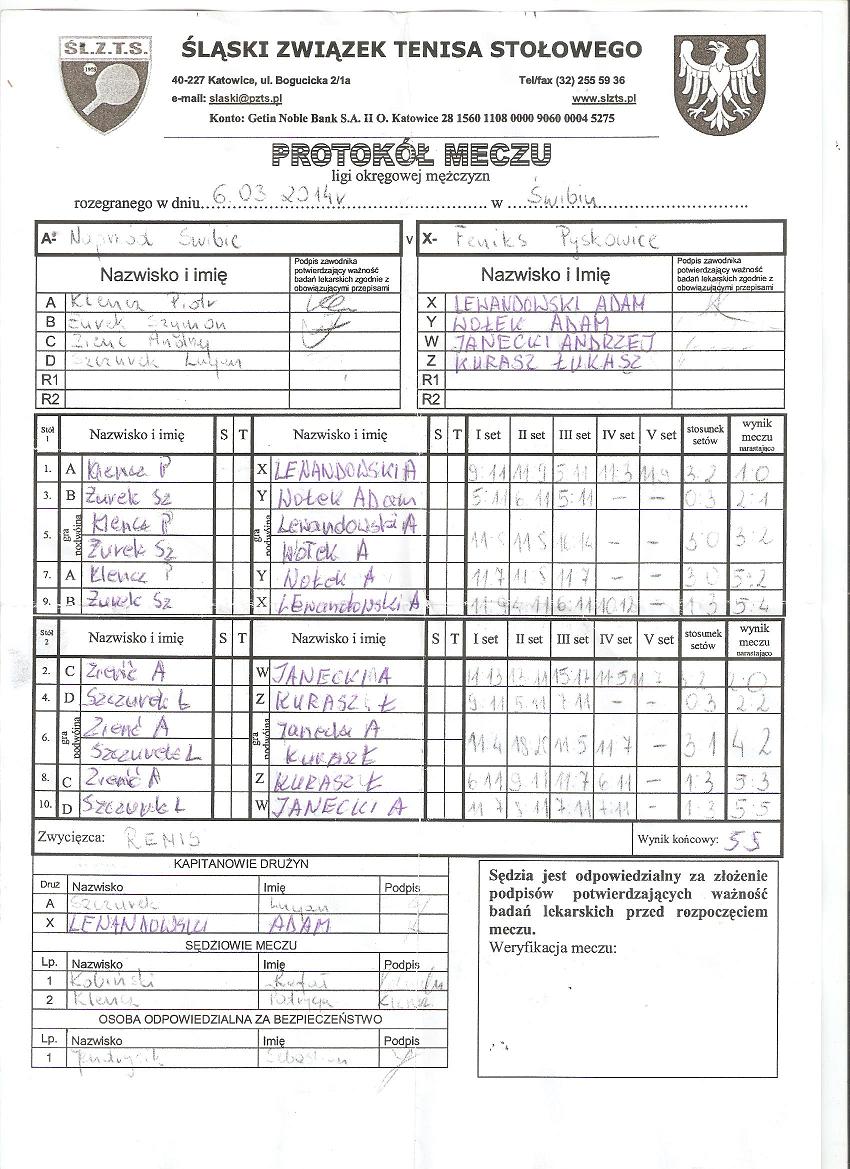 ŚL.Z.T.S.
1953
ŚLĄSKI ZWIĄZEK TENISA STOŁOWEGO
40-227 Katowice, ul. Bogucicka 2/1a Tel/fax (32) 255 59 36
e-mail: slaski@pzts.pl www.slzts.pl
Konto: Getin Noble Bank S.A. II O. Katowice 28 1560 1108 0000 9060 0004 5275
PROTOKÓŁ MECZU
ligi okręgowej mężczyzn
rozegranego w dniu 6.03 2014r w Świbiu
A- Naprzód Świbie v X- Feniks Pyskowice
Nazwisko i imię Podpis zawodnika potwierdzający ważność badań lekarskich zgodnie z obowiązującymi przepisami Nazwisko i Imię Podpis zawodnika potwierdzający ważność badań lekarskich zgodnie z obowiązującymi przepisami
A Klencz Piotr X LEWANDOWSKI ADAM
B Żurek Szymon Y WOŁEK ADAM
C Zienć W JANECKI ANDRZEJ
D Szczurek Lucjan Z KURASZ ŁUKASZ
R1 R1
R2 R2
Stół 1 Nazwisko i imię S T Nazwisko i imię S T I set II set III set IV set V set stosunek setów wynik meczu narastająco
1. A Klencz P X LEWANDOWSKI A 9 11 11 9 5 11 11 3 11 9 3 2 1 0
3. B Żurek Sz Y Wołek Adam 5 11 6 11 5 11 - - 0 3 2 1
5. gra podwójna Klencz P gra podwójna Lewandowski A 3 0 3 2
Żurek Sz Wołek A
7. A Klencz P Y Wołek A 11 7 11 7 - - 3 0 5 2
9. B Żurek Sz X Lewandowski A 11 9 4 11 6 11 10 12 - 1 3 5 4
Stół 2 Nazwisko i imię S T Nazwisko i imię S T I set II set III set IV set V set stosunek setów wynik meczu narastająco
2. C Zienć A W JANECKI A 3 2 2:0
4. D Szczurek L Z KURASZ Ł 9 11 5 11 7 11 - 0 3 2 2
6. gra podwójna Zienć A gra podwójna Janecki A 11 4 11 5 11 7 - 3 1 4 2
Szczurek L Kurasz Ł
8. C Zienć A Z KURASZ Ł 6 11 9 11 11 7 6 11 - 1:3 5:3
10. D Szczurek L W JANECKI A 11 7 7 11 7 11 - 1:3 5:5
Zwycięzca: REMIS Wynik końcowy: 5 5
KAPITANOWIE DRUŻYN
Druż Nazwisko Imię Podpis
A Szczurek Lucjan
X LEWANDOWSKI ADAM
SĘDZIOWIE MECZU
Lp. Nazwisko Imię Podpis
1 Rafał
2 Klencz Patrycja
OSOBA ODPOWIEDZIALNA ZA BEZPIECZEŃSTWO
Lp. Nazwisko Imię Podpis
1 Sebastian
Sędzia jest odpowiedzialny za złożenie
podpisów potwierdzających ważność
badań lekarskich przed rozpoczęciem
meczu.
Weryfikacja meczu: